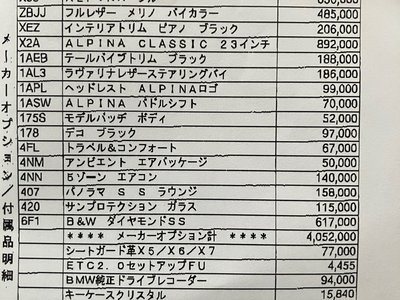 ZBJJ フルレザー メリノ バイカラー 485,000
XEZ インテリアトリム ピアノ ブラック 206,000
X2A ALPINA CLASSIC 23インチ 892,000
1AEB テールパイプトリム ブラック 188,000
1AL3 ラヴァリナレザーステアリングバイ 186,000
1APL ヘッドレスト ALPINAロゴ 99,000
1ASW ALPINA パドルシフト 70,000
175S モデルバッヂ ボディ 52,000
178 デコ ブラック 97,000
4FL トラベル&コンフォート 67,000
4NM アンビエント エアパッケージ 50,000
4NN 5ゾーン エアコン 140,000
407 パノラマ SS ラウンジ 158,000
420 サンプロテクション ガラス 115,000
6F1 B&W ダイヤモンドSS 617,000
**** メーカーオプション計 **** 4,052,000
シートガード革X5/X6/X7 77,000
ETC2.0セットアップFU 4,455
BMW純正ドライブレコーダー 94,000
キーケースクリスタル 15,840
メーカーオプション/付属品明細